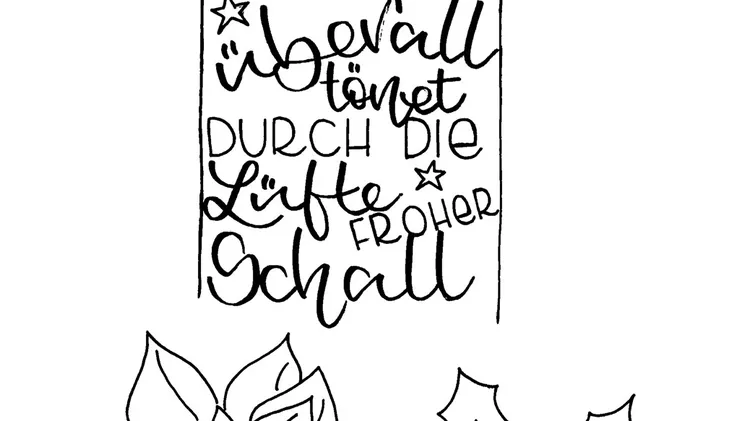 überall
tönet
DURCH DIE
Lüfte
FROHER
Schall